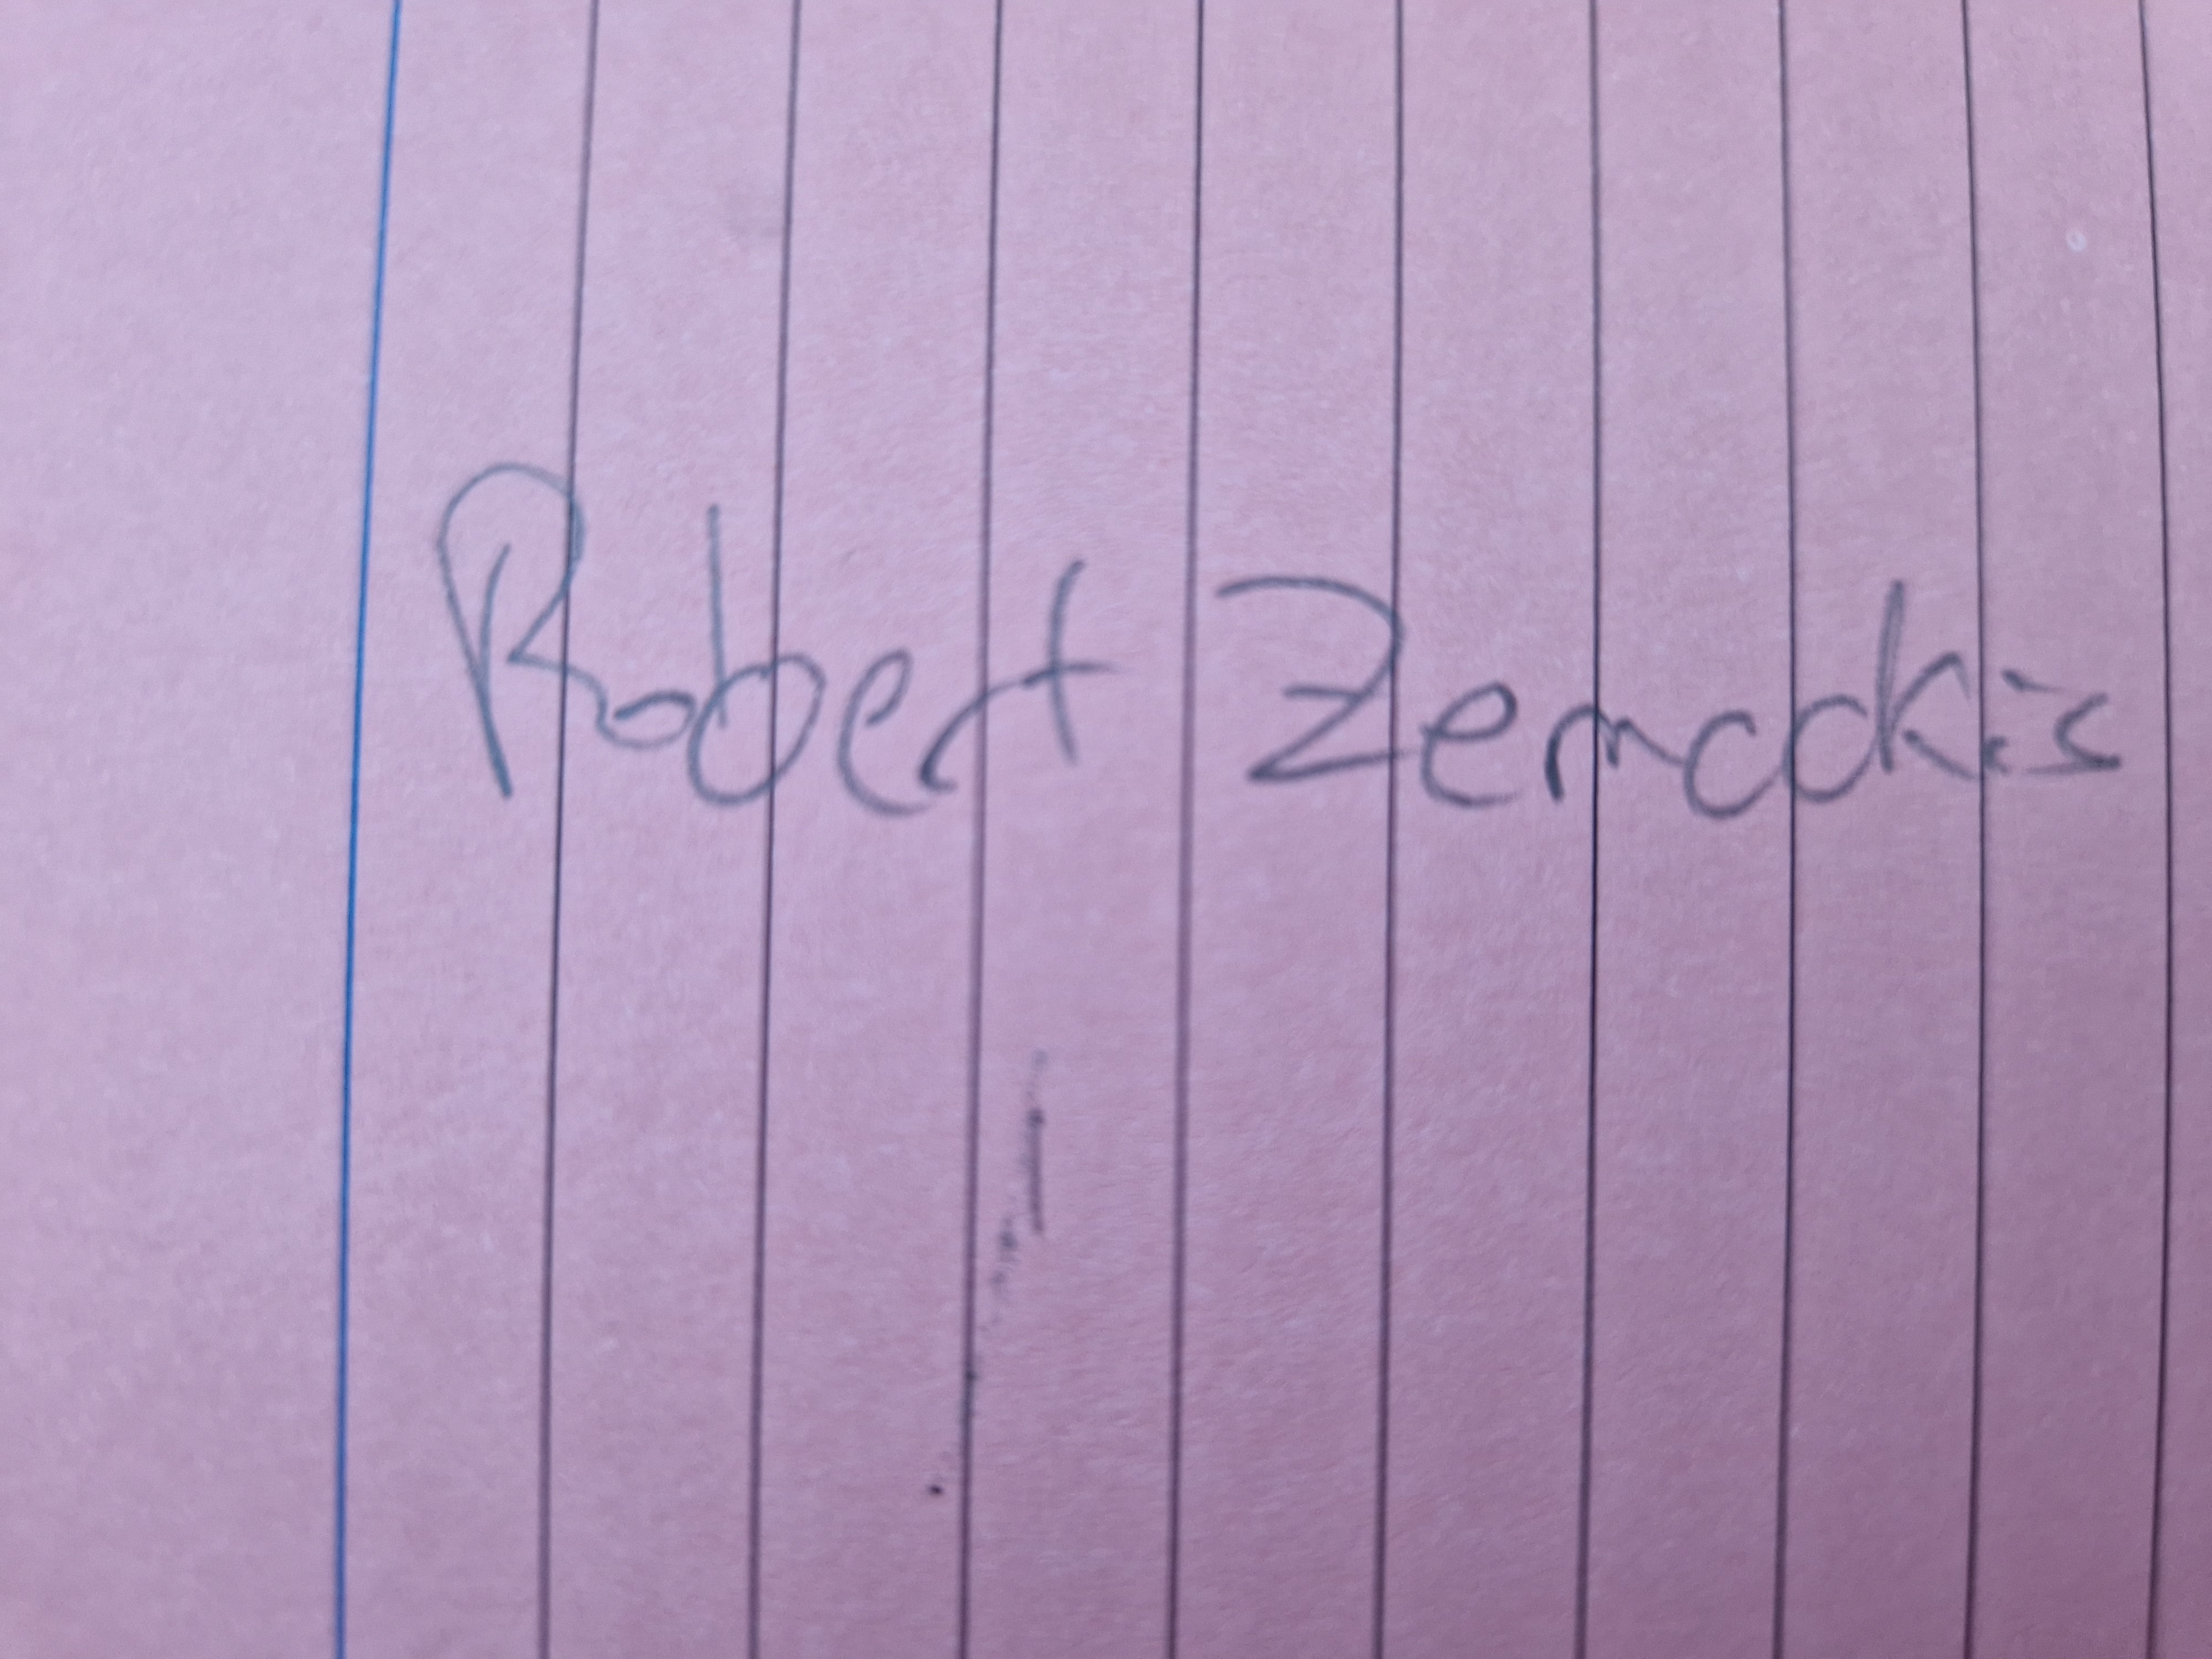 Robert Zemcckis